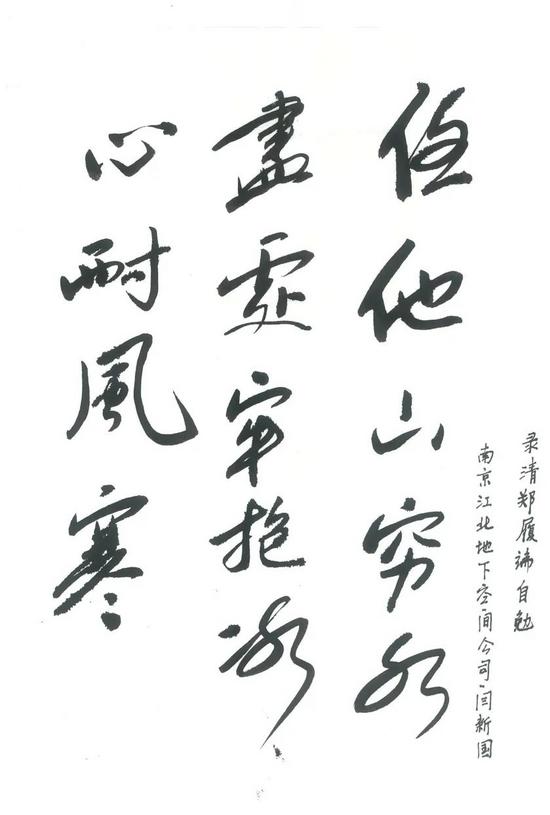 任他山穷水
盡處牢抱冰
心耐風寒
录清郑履端自勉
南京江北地下空间公司·闫新国